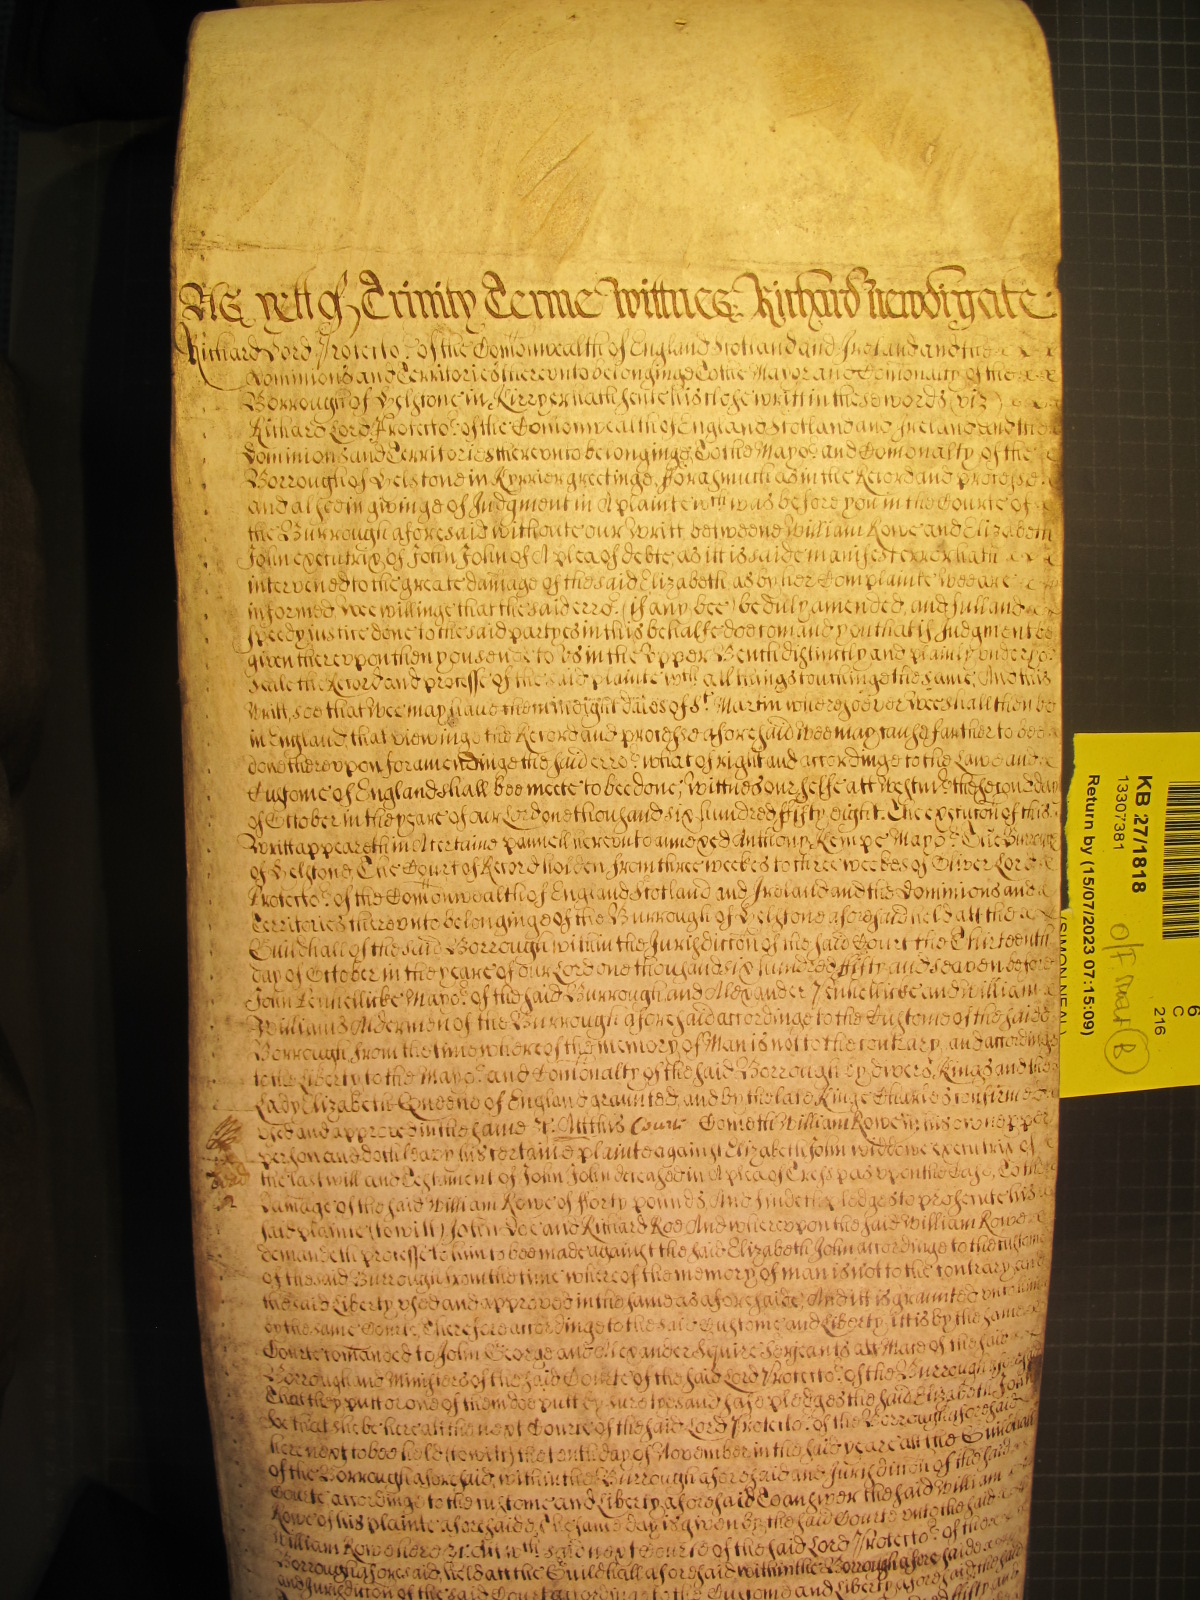 As yett of Trinity Terme Wittnes: Richard Newdigate:
Richard Lord Protector of the Comonwealth of England Scotland and Ireland and the
dominions and Territories thereunto belonginge To the Mayor and Comonalty of the
Borrough of Helstone in Kerryer hath sente his close writt in these words (viz)
Richard Lord Protector of the Comonwealth of England Scotland and Ireland and the
dominions and Territories thereunto belonginge, To the Mayor and Comonalty of the
Borrough of Helstone in Kyrrier greetinge, fforasmuch as in the Record and processe
and alsoe in givinge of Judgment in A plainte wch was before you in the Courte of
the Burrough aforesaid withoute our Writt betweene William Rowe and Elizabeth
John executrix of John John of A plea of debte, as itt is saide manifest error hath
intervened to the greate damage of the said Elizabeth as by her Complainte wee are
informed, Wee willinge that the said error (if any bee) be duly amended, and full and
speedy justice done to the said partyes in this behalfe doe comand you that if Judgment be
given thereupon then you sende to Us in the Upper Bench distinctly and plainly under yor
Seale the Record and processe of the said plainte wth all things touchinge the same, And this
Writt, soe that Wee may have them in eight daies of St Martin wheresoever wee shall then be
in England, that viewinge the Record and processe aforesaid wee may cause farther to bee
done thereupon for amendinge the said error what of right and accordinge to the Lawe and
Custome of England shall bee meete to bee done; Wittnes our selfe att Westmr the second day
of October in the yeare of our Lord one thousand six hundred ffifty eight. The execution of this
Writt appeareth in A certaine pannell hereunto annexed Anthony Kempe Mayor: The Burrough
of Helstone The Court of Record holden from three weekes to three weekes of Oliver Lord
Protector of the Comonwealth of England Scotland and Ireland and the dominions and
Territories thereunto belonginge of the Burrough of Helstone aforesaid held att the
Guildhall of the said Borrough within the Jurisdiction of the said Court the Thirteenth
day of October in the yeare of our Lord one thousand six hundred ffifty and seaven before
John Mayor of the said Burrough and Alexander and William
Williams Aldermen of the Burrough aforesaid accordinge to the Custome of the saide
Borrough from the time whereof the memory of Man is not to the contrary, and accordinge
to the Liberty to the Mayor and Comonalty of the said Borrough by divers Kings and the
Lady Elizabeth Queene of England graunted, and by the late Kinge Charles confirmed
used and approved in the same Att this Courte Cometh William Rowe in his owne proper
person and doth leavy his certaine plainte against Elizabeth John widdowe executrix of
the last will and Testament of John John deceased in A plea of Trespas upon the Case, To the
damage of the said William Rowe of fforty pounds, And findeth pledges to prosecute his
said plainte (to witt) John Doe and Richard Roe And whereupon the said William Rowe
demandeth processe to him to bee made against the said Elizabeth John accordinge to the custome
of the said Burrough from the time whereof the memory of man is not to the contrary and
the said Liberty used and approved in the same as aforesaide; And itt is graunted unto him
by the same Courte, Therefore accordinge to the said Custome and Liberty, itt is by the same
Courte comanded to John George and Alexander Squire Serjeants att Mace of the said
Borrough and Ministers of the said Courte of the said Lord Protector of the Burrough aforesaid
That they putt or one of them doe putt by suretyes and safe pledges the said Elizabeth John
soe that shee be here att the next Courte of the said Lord Protector of the Borrough aforesaid
here next to bee held (to witt) the tenth day of November in the said yeare att the Guildhall
of the Borrough aforesaid, within the Burrough aforesaid and Jurisdiction of the said
Courte accordinge to the custome and Liberty aforesaid To answer the said William
Rowe of his plainte aforesaide, the same day is given by the said Courte unto the said
William Rowe here &c Att wch said next Courte of the said Lord Protector of the
Borrough aforesaid, held at the Guildhall aforesaid within the Borrough aforesaid
and Jurisdiction of the said Court accordinge to the Custome and Liberty aforesaid the said
KB 27/1818
13307381
Return by (15/07/2023 07:15:09)
(SIMON NEAL)
6
C
216